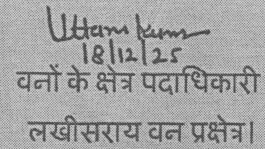 Uttam Kumar
18/12/25
वनों के क्षेत्र पदाधिकारी
लखीसराय वन प्रक्षेत्र।